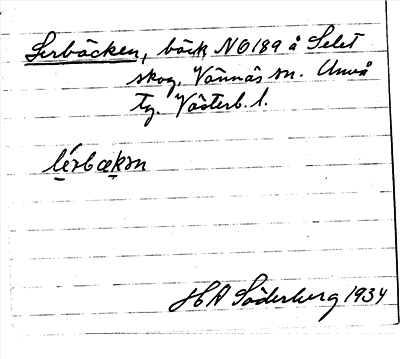 Lerbäcken, bäck NO189 å Selet
skog, Vännäs sn. Umeå
tg. Västerb. l.
lérbækən
HA Söderberg 1934